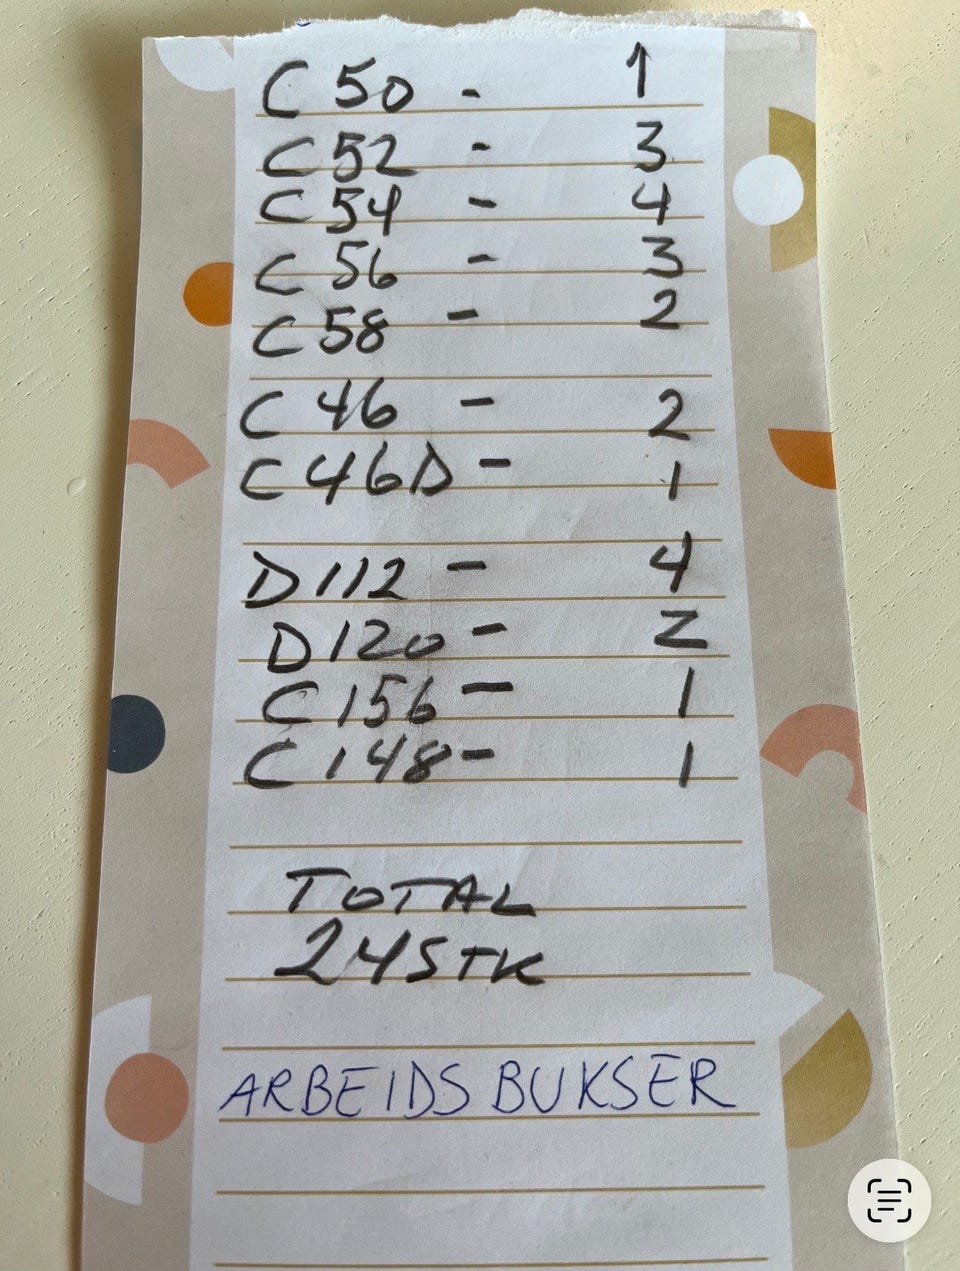 C 50 - 1
C 52 - 3
C 54 - 4
C 56 - 3
C 58 - 2
C 46 - 2
C 46D - 1
D 112 - 4
D 120 - 2
C 156 - 1
C 148 - 1
TOTAL
24 STK
ARBEIDS BUKSER